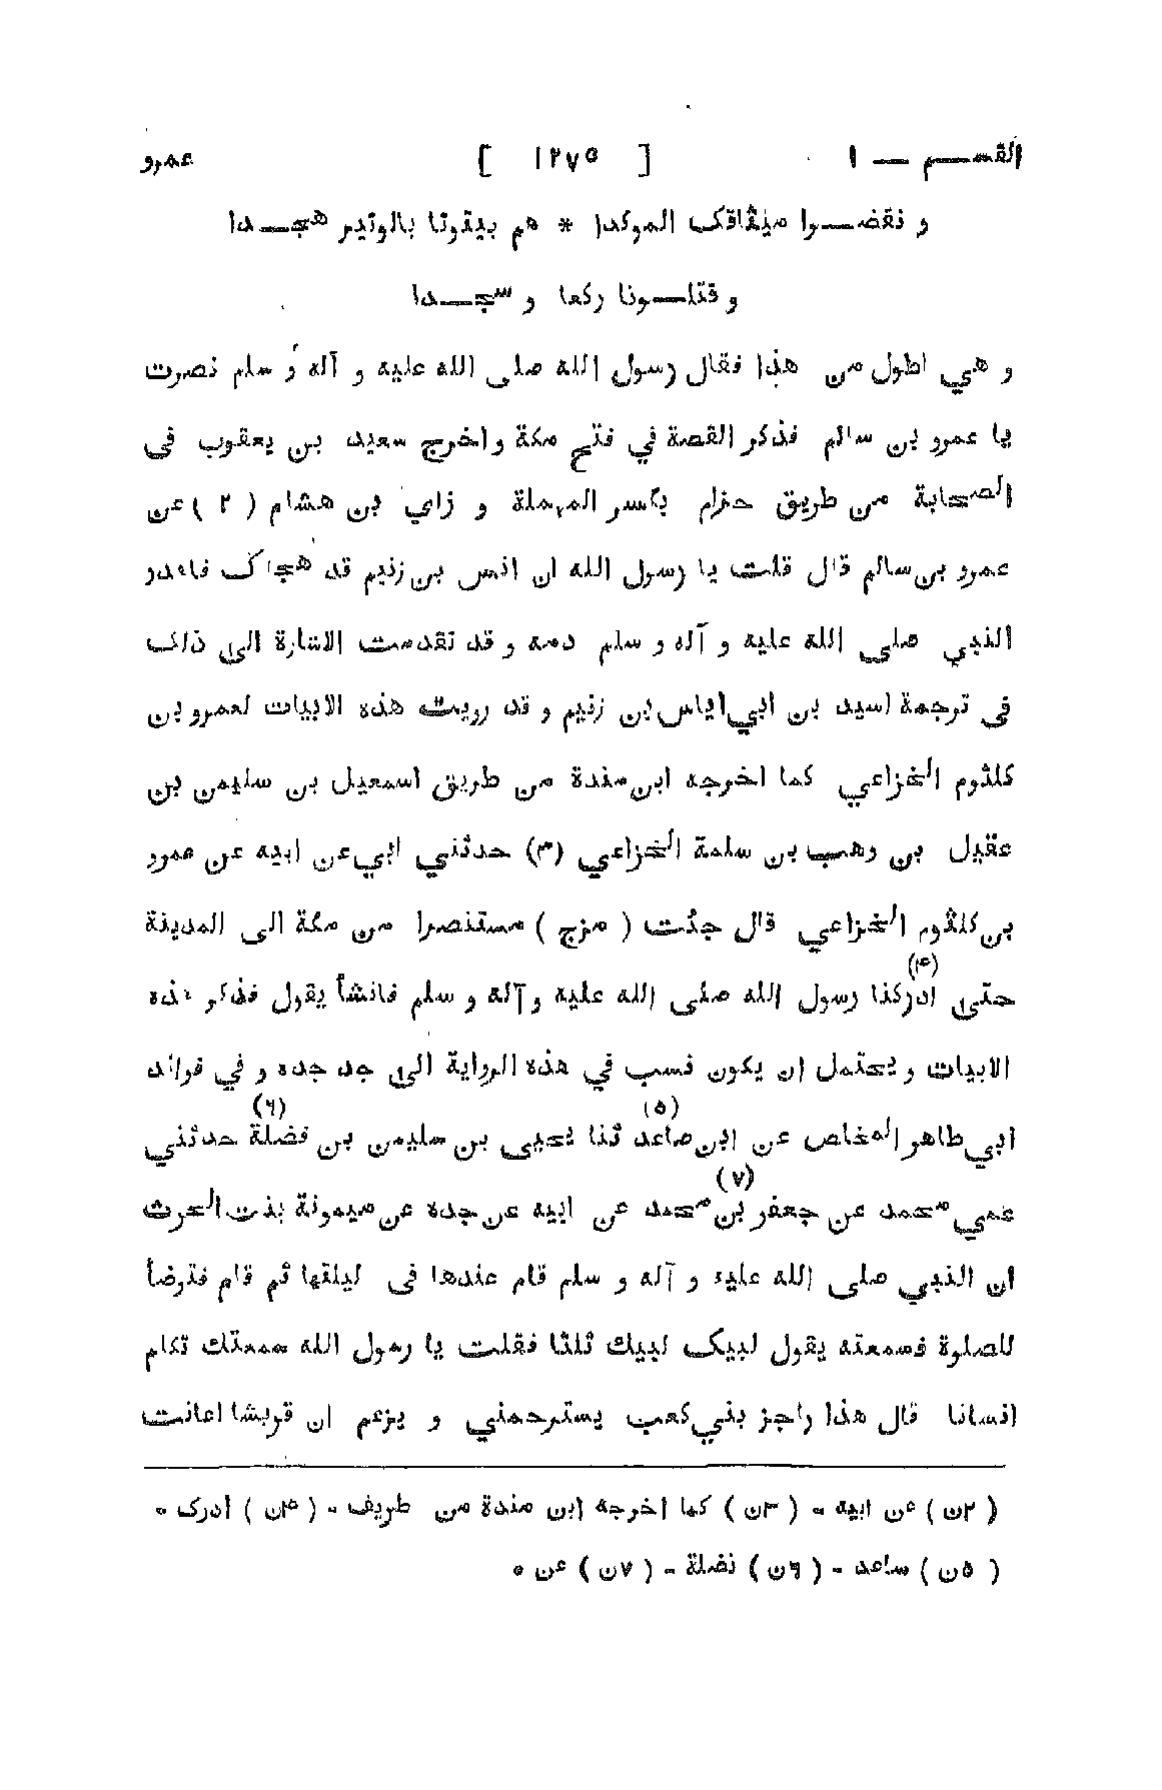 القســم — ١ [ ١٢٧٥ ] عمرو
و نقضــوا ميثاقك الموكدا * هم بيتونا بالوتير هجــدا
و قتلــونا ركعا و سجــدا
و هي اطول من هذا فقال رسول الله صلى الله عليه و آله و سلم نصرت
يا عمرو بن سالم فذكر القصة في فتح مكة و اخرج سعيد بن يعقوب فى
الصحابة من طريق حزام بكسر المهملة و زاي بن هشام ( ٢ ) عن
عمرو بن سالم قال قلت يا رسول الله ان انس بن زنيم قد هجاك فاهدر
النبي صلى الله عليه و آله و سلم دمه و قد تقدمت الاشارة الى ذلك
فى ترجمة اسيد بن ابي اياس بن زنيم و قد رويت هذه الابيات لعمرو بن
كلثوم الخزاعي كما اخرجه ابن مندة من طريق اسمعيل بن سليمن بن
عقيل بن وهب بن سلمة الخزاعي (٣) حدثني ابي عن ابيه عن عمرو
بن كلثوم الخزاعي قال جئت ( مزج ) مستنصرا من مكة الى المدينة
حتى ادركنا (٤) رسول الله صلى الله عليه و آله و سلم فانشأ يقول فذكر هذه
الابيات و يحتمل ان يكون نسب في هذه الرواية الى جد جده و في فوائد
ابي طاهر المخلص عن ابن صاعد (٥) ثنا يحيى بن سليمن بن فضلة (٦) حدثني
عمي محمد عن جعفر بن (٧) محمد عن ابيه عن جده عن ميمونة بنت الحرث
ان النبي صلى الله عليه و آله و سلم قام عندها فى ليلتها ثم قام فتوضأ
للصلوة فسمعته يقول لبيك لبيك ثلثا فقلت يا رسول الله سمعتك تكلم
انسانا قال هذا راجز بني كعب يسترحمني و يزعم ان قريشا اعانت
( ٢ن ) عن ابيه - ( ٣ن ) كما اخرجه ابن مندة من طريف - ( ٤ن ) ادرك -
( ٥ن ) ساعد - ( ٦ن ) نضلة - ( ٧ن ) عن *